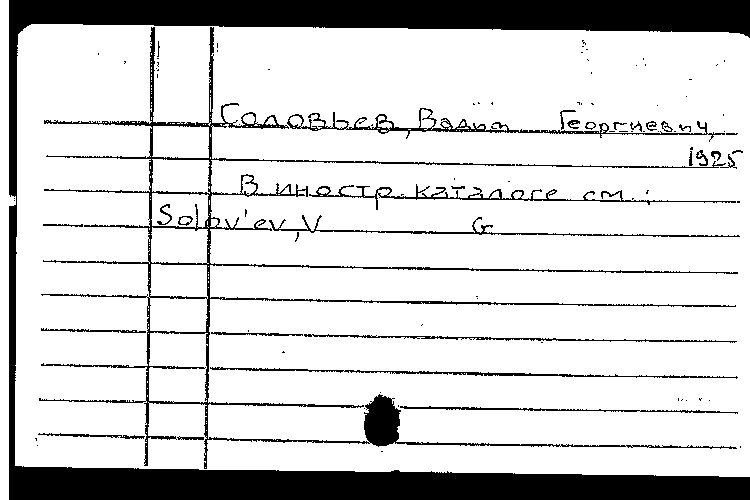 Соловьев, Вадим Георгиевич,
1925
В иностр. каталоге см.:
Solov'ev, V G